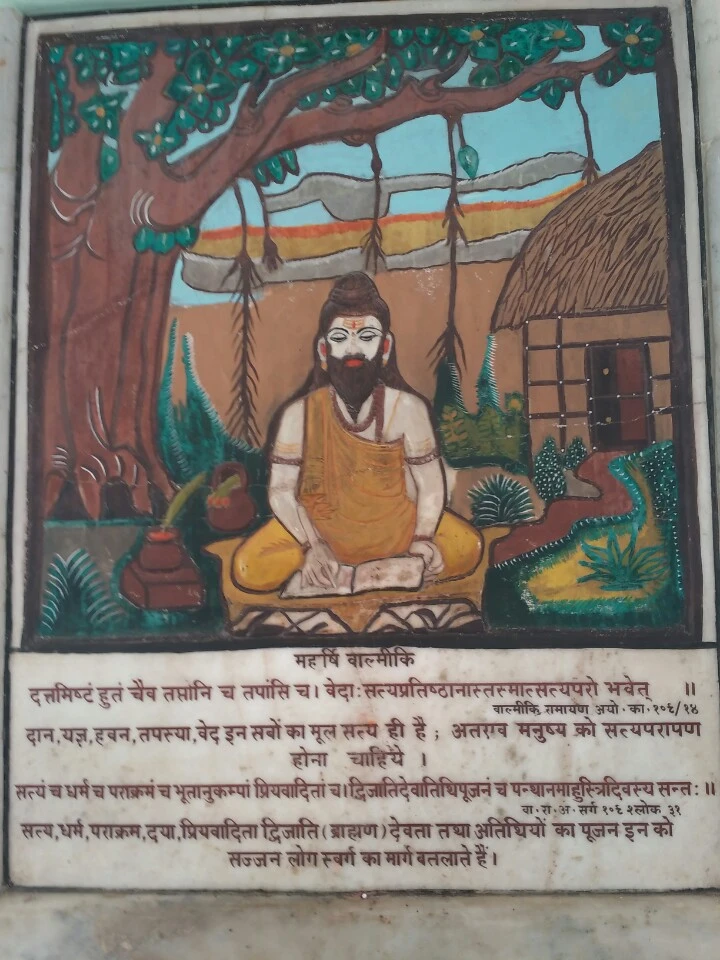 महर्षि वाल्मीकि
दत्तमिष्टं हुतं चैव तप्तानि च तपांसि च। वेदाः सत्यप्रतिष्ठानास्तस्मात्सत्यपरो भवेत् ॥
वाल्मीकि रामायण अयो. का. १०६/१४
दान, यज्ञ, हवन, तपस्या, वेद इन सबों का मूल सत्य ही है ; अतएव मनुष्य को सत्यपरापण
होना चाहिये ।
सत्यं च धर्मं च पराक्रमं च भूतानुकम्पां प्रियवादितां च। द्विजातिदेवातिथिपूजनं च पन्थानमाहुस्त्रिदिवस्य सन्तः ॥
वा. रा. अ. सर्ग १०६ श्लोक ३१
सत्य, धर्म, पराक्रम, दया, प्रियवादिता द्विजाति (ब्राह्मण) देवता तथा अतिथियों का पूजन इन को
सज्जन लोग स्वर्ग का मार्ग बतलाते हैं।